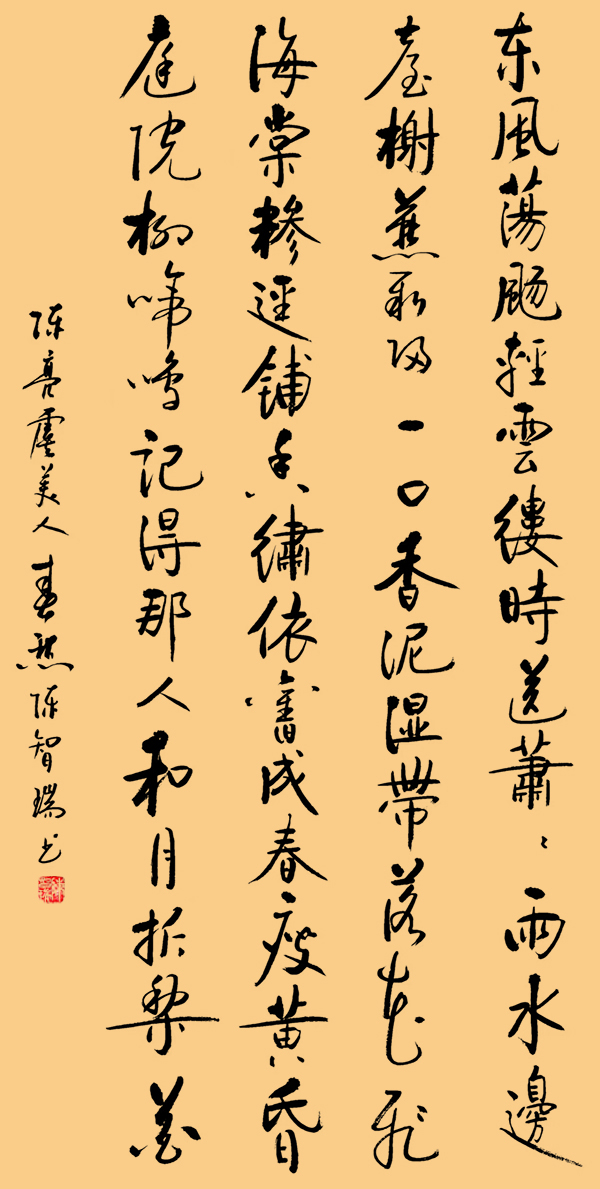 东風蕩颺輕雲縷時送蕭〻雨水邊
臺榭燕新归一口香泥湿帶落花飛
海棠糁逕铺香繡依舊成春瘦黄昏
庭院柳啼鸣記得那人和月折梨花
陈亮虞美人春愁陈智瑞书